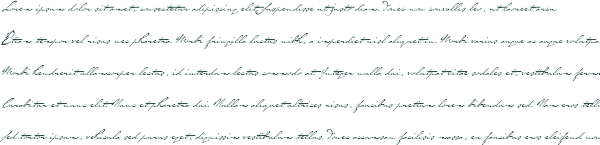 Lorem ipsum dolor sit amet, consectetur adipiscing elit. Suspendisse ut justo diam. Donec non convallis leo, ut laoreet arcu.
Etiam tempor vel risus nec pharetra. Morbi fringilla luctus nibh, a imperdiet nisl aliquet eu. Morbi varius augue ac augue volutpat
Morbi hendrerit ullamcorper lectus, id interdum lectus commodo at. Integer nulla dui, volutpat vitae sodales et, vestibulum
Curabitur et nunc elit. Nunc et pharetra dui. Nullam aliquet ultrices risus, faucibus pretium lorem bibendum sed. Non eros tellus
Sed tortor ipsum, vehicula sed purus eget, dignissim vestibulum tellus. Donec accumsan facilisis massa, eu faucibus eros eleifend